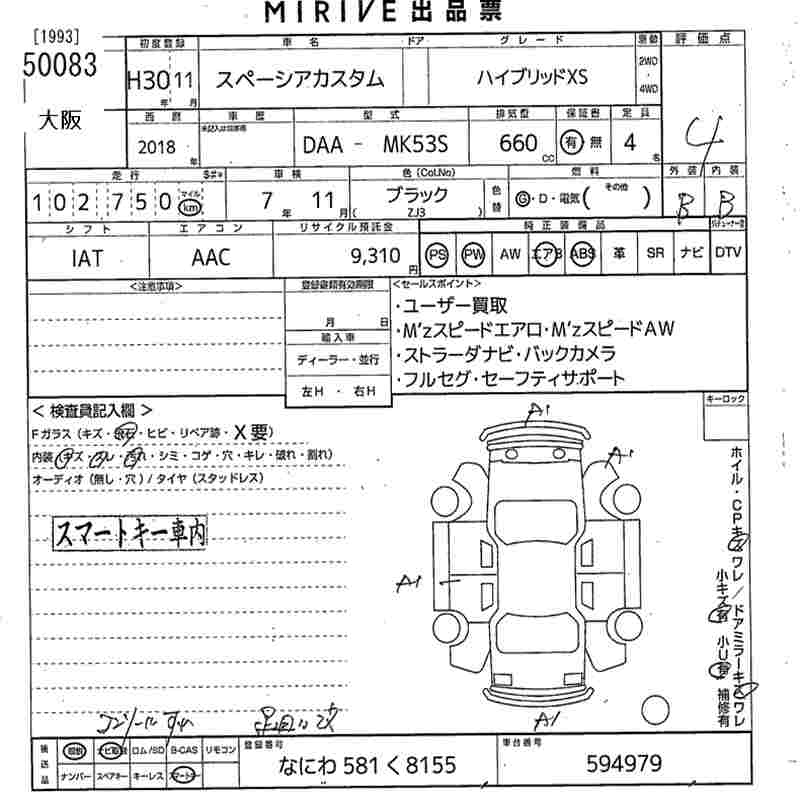 MIRIVE 出品票
[1993]
50083
大阪
初度登録 車名 ドア グレード 駆動 評価点
H30 11 スペーシアカスタム ハイブリッドXS 2WD・4WD
年 月
4
西暦 車歴 型式 排気量 保証書 定員
2018年 DAA - MK53S 660cc 有 無 4名
外装 内装
B B
走行 車検 色(Col.No) 燃料
102750 マイル km 7年 11月 ブラック 色替 G・D・電気( その他 )
( ZJ3 )
シフト エアコン リサイクル預託金 純正装備品
IAT AAC 9,310円 PS PW AW エアB ABS 革 SR ナビ DTV
<注意事項> 登録書類有効期限 <セールスポイント>
月 日
輸入車
ディーラー・並行
左H ・ 右H
・ユーザー買取
・M'zスピードエアロ・M'zスピードAW
・ストラーダナビ・バックカメラ
・フルセグ・セーフティサポート
キーロック
< 検査員記入欄 >
Fガラス(キズ・飛石・ヒビ・リペア跡・X要)
内装(キズ・スレ・汚れ・シミ・コゲ・穴・キレ・破れ・割れ)
オーディオ(無し・穴)/タイヤ(スタッドレス)
スマートキー車内
A1
A1
A1
A1
ホイル・CPキズワレ/ドアミラーキズワレ
小キズ有 小U有 補修有
後送品 取説 ナビ取説 ロム/SD B-CAS リモコン
ナンバー スペアキー キーレス スマートキー
登録番号
なにわ 581 く 8155
車台番号
594979